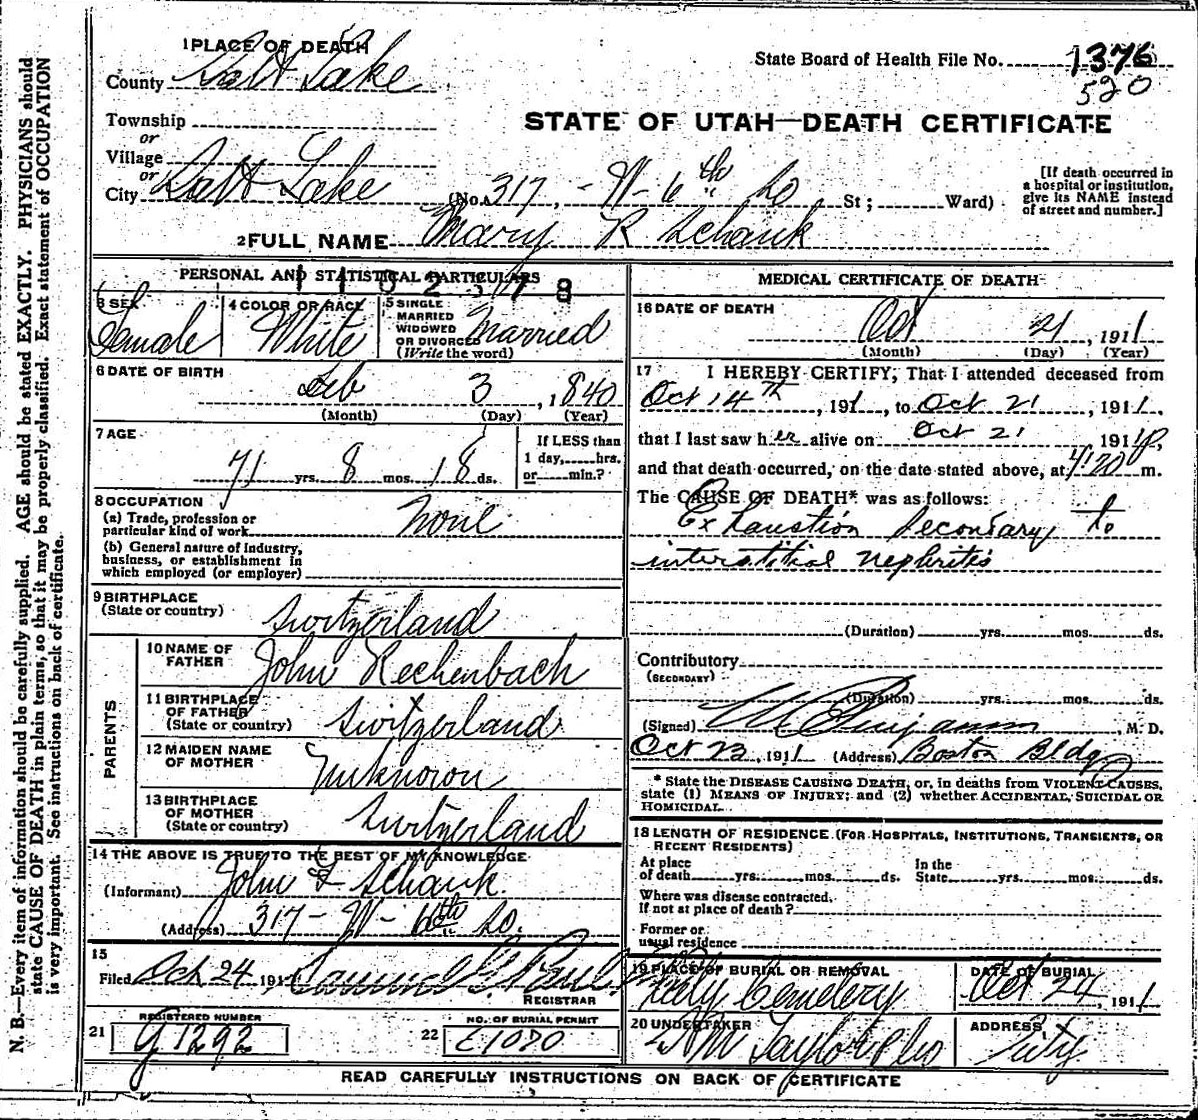 1 PLACE OF DEATH
County Salt Lake
Township
or
Village
or
City Salt Lake
State Board of Health File No. 1376
520
STATE OF UTAH—DEATH CERTIFICATE
(No. 317, - W - 6th So St; Ward)
[If death occurred in a hospital or institution, give its NAME instead of street and number.]
2 FULL NAME Mary R Schank
PERSONAL AND STATISTICAL PARTICULARS
3 SEX Female
4 COLOR OR RACE White
5 SINGLE MARRIED WIDOWED OR DIVORCED (Write the word) Married
6 DATE OF BIRTH Feb 3, 1840
(Month) (Day) (Year)
7 AGE 71 yrs. 8 mos. 18 ds.
If LESS than 1 day, hrs. or min.?
8 OCCUPATION
(a) Trade, profession or particular kind of work None
(b) General nature of industry, business, or establishment in which employed (or employer)
9 BIRTHPLACE
(State or country) Switzerland
PARENTS
10 NAME OF FATHER John Rechenbach
11 BIRTHPLACE OF FATHER (State or country) Switzerland
12 MAIDEN NAME OF MOTHER Unknown
13 BIRTHPLACE OF MOTHER (State or country) Switzerland
14 THE ABOVE IS TRUE TO THE BEST OF MY KNOWLEDGE
(Informant) John F Schank.
(Address) 317 - W - 6th So.
15
Filed Oct 24 191
REGISTRAR
REGISTERED NUMBER
21 G 1292
NO. OF BURIAL PERMIT
22 E1070
MEDICAL CERTIFICATE OF DEATH
16 DATE OF DEATH Oct 21, 1911
(Month) (Day) (Year)
17 I HEREBY CERTIFY, That I attended deceased from
Oct 14th, 1911, to Oct 21, 1911,
that I last saw her alive on Oct 21 1911,
and that death occurred, on the date stated above, at m.
The CAUSE OF DEATH* was as follows:
Exhaustion Secondary to
interstitial nephritis
(Duration) yrs. mos. ds.
Contributory
(SECONDARY)
(Duration) yrs. mos. ds.
(Signed) , M. D.
Oct 23, 1911 (Address) Boston Bldg
* State the DISEASE CAUSING DEATH, or, in deaths from VIOLENT CAUSES, state (1) MEANS OF INJURY; and (2) whether ACCIDENTAL, SUICIDAL OR HOMICIDAL.
18 LENGTH OF RESIDENCE (FOR HOSPITALS, INSTITUTIONS, TRANSIENTS, OR RECENT RESIDENTS)
At place of death yrs. mos. ds. In the State yrs. mos. ds.
Where was disease contracted, If not at place of death?
Former or usual residence
19 PLACE OF BURIAL OR REMOVAL City Cemetery
DATE OF BURIAL Oct 24, 1911
20 UNDERTAKER Taylor
ADDRESS City
READ CAREFULLY INSTRUCTIONS ON BACK OF CERTIFICATE
N. B.—Every item of information should be carefully supplied. AGE should be stated EXACTLY. PHYSICIANS should
state CAUSE OF DEATH in plain terms, so that it may be properly classified. Exact statement of OCCUPATION
is very important. See instructions on back of certificate.